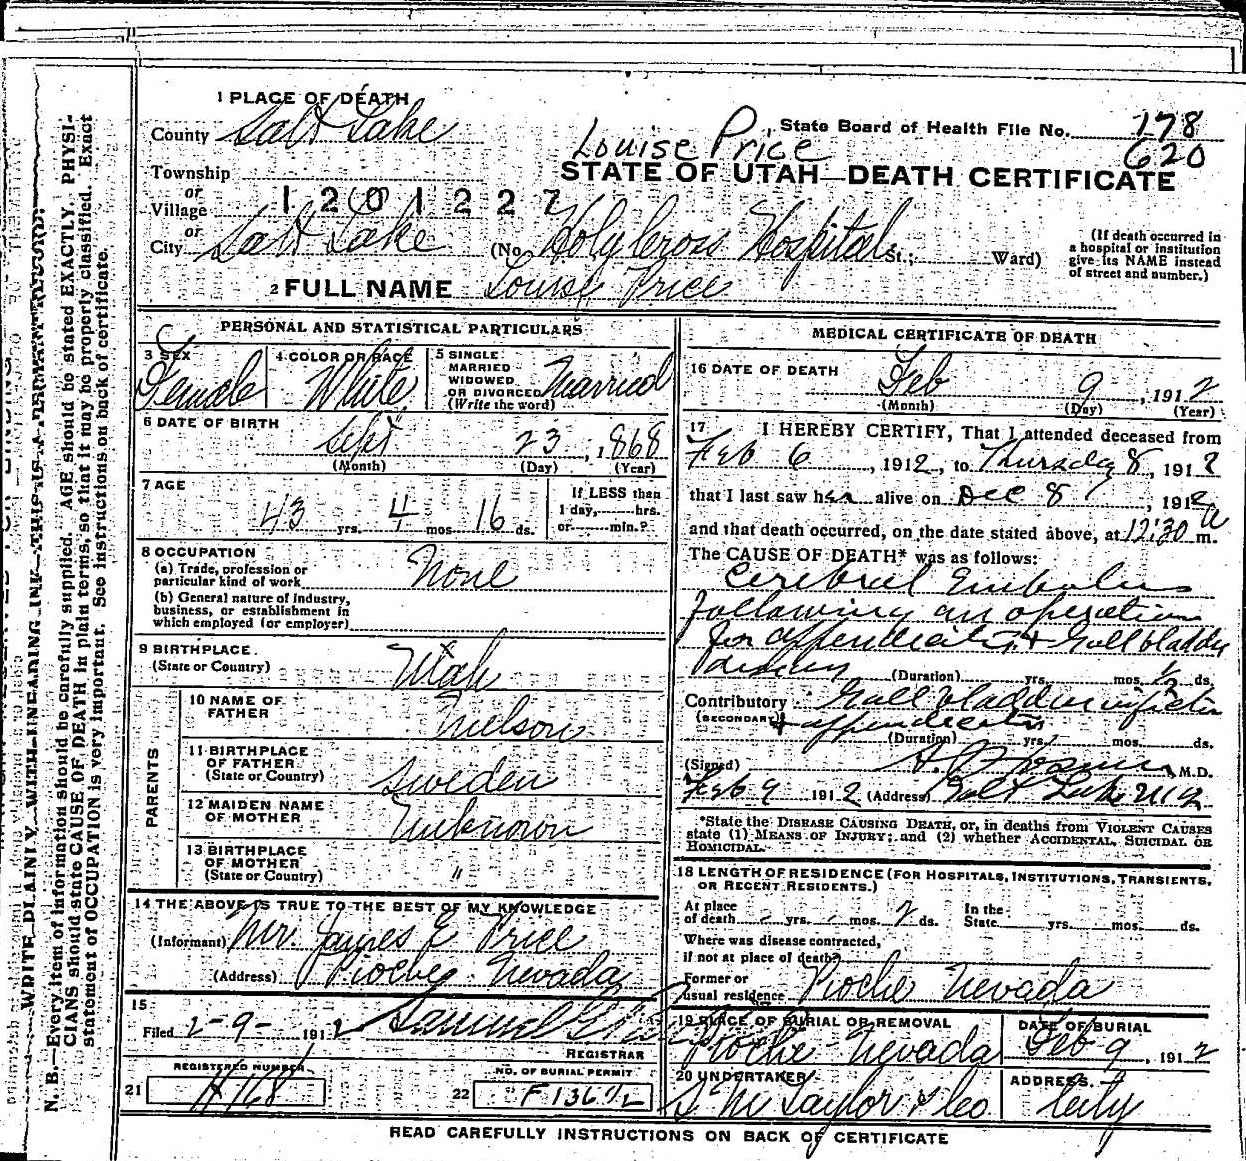 1 PLACE OF DEATH
County Salt Lake
State Board of Health File No. 178
620
Louise Price
STATE OF UTAH—DEATH CERTIFICATE
Township
or
Village
1201227
or
City Salt Lake (No. Holy Cross Hospital St.; Ward)
(If death occurred in a hospital or institution give its NAME instead of street and number.)
2 FULL NAME Louise Price
PERSONAL AND STATISTICAL PARTICULARS
3 SEX Female
4 COLOR OR RACE White
5 SINGLE MARRIED WIDOWED OR DIVORCED (Write the word) Married
6 DATE OF BIRTH
Sept 23, 1868
(Month) (Day) (Year)
7 AGE
43 yrs. 4 mos. 16 ds.
If LESS than 1 day, hrs. or min.?
8 OCCUPATION
(a) Trade, profession or particular kind of work None
(b) General nature of industry, business, or establishment in which employed (or employer)
9 BIRTHPLACE
(State or Country) Utah
PARENTS
10 NAME OF FATHER Nielson
11 BIRTHPLACE OF FATHER (State or Country) Sweden
12 MAIDEN NAME OF MOTHER Unknown
13 BIRTHPLACE OF MOTHER (State or Country) "
14 THE ABOVE IS TRUE TO THE BEST OF MY KNOWLEDGE
(Informant) Mr. James E Price
(Address) Pioche, Nevada
15
Filed 2-9- 1912 Samuel G
REGISTRAR
REGISTERED NUMBER
21 H168
NO. OF BURIAL PERMIT
22
MEDICAL CERTIFICATE OF DEATH
16 DATE OF DEATH
Feb 9, 1912
(Month) (Day) (Year)
17 I HEREBY CERTIFY, That I attended deceased from
Feb 6, 1912, to Thursday 8, 1912
that I last saw her alive on Dec 8, 1912
and that death occurred, on the date stated above, at 12:30 a m.
The CAUSE OF DEATH* was as follows:
Cerebral Embolus
following an operation
for appendicitis + Gall bladder
(Duration) yrs. mos. ½ ds.
Contributory Gall bladder infection
(SECONDARY) + appendicitis
(Duration) yrs. mos. ds.
(Signed) M.D.
Feb 9 1912 (Address) Salt Lake
*State the DISEASE CAUSING DEATH, or, in deaths from VIOLENT CAUSES
state (1) MEANS OF INJURY; and (2) whether ACCIDENTAL, SUICIDAL OR
HOMICIDAL.
18 LENGTH OF RESIDENCE (FOR HOSPITALS, INSTITUTIONS, TRANSIENTS,
OR RECENT RESIDENTS.)
At place of death - yrs. - mos. 2 ds. In the State yrs. mos. ds.
Where was disease contracted,
if not at place of death?
Former or
usual residence Pioche Nevada
19 PLACE OF BURIAL OR REMOVAL
Pioche Nevada
DATE OF BURIAL
Feb 9, 1912
20 UNDERTAKER
S M Taylor & Co
ADDRESS
City
READ CAREFULLY INSTRUCTIONS ON BACK OF CERTIFICATE
WRITE PLAINLY WITH UNFADING INK—THIS IS A PERMANENT RECORD.
N. B.—Every item of information should be carefully supplied. AGE should be stated EXACTLY. PHYSI-
CIANS should state CAUSE OF DEATH in plain terms, so that it may be properly classified. Exact
statement of OCCUPATION is very important. See instructions on back of certificate.